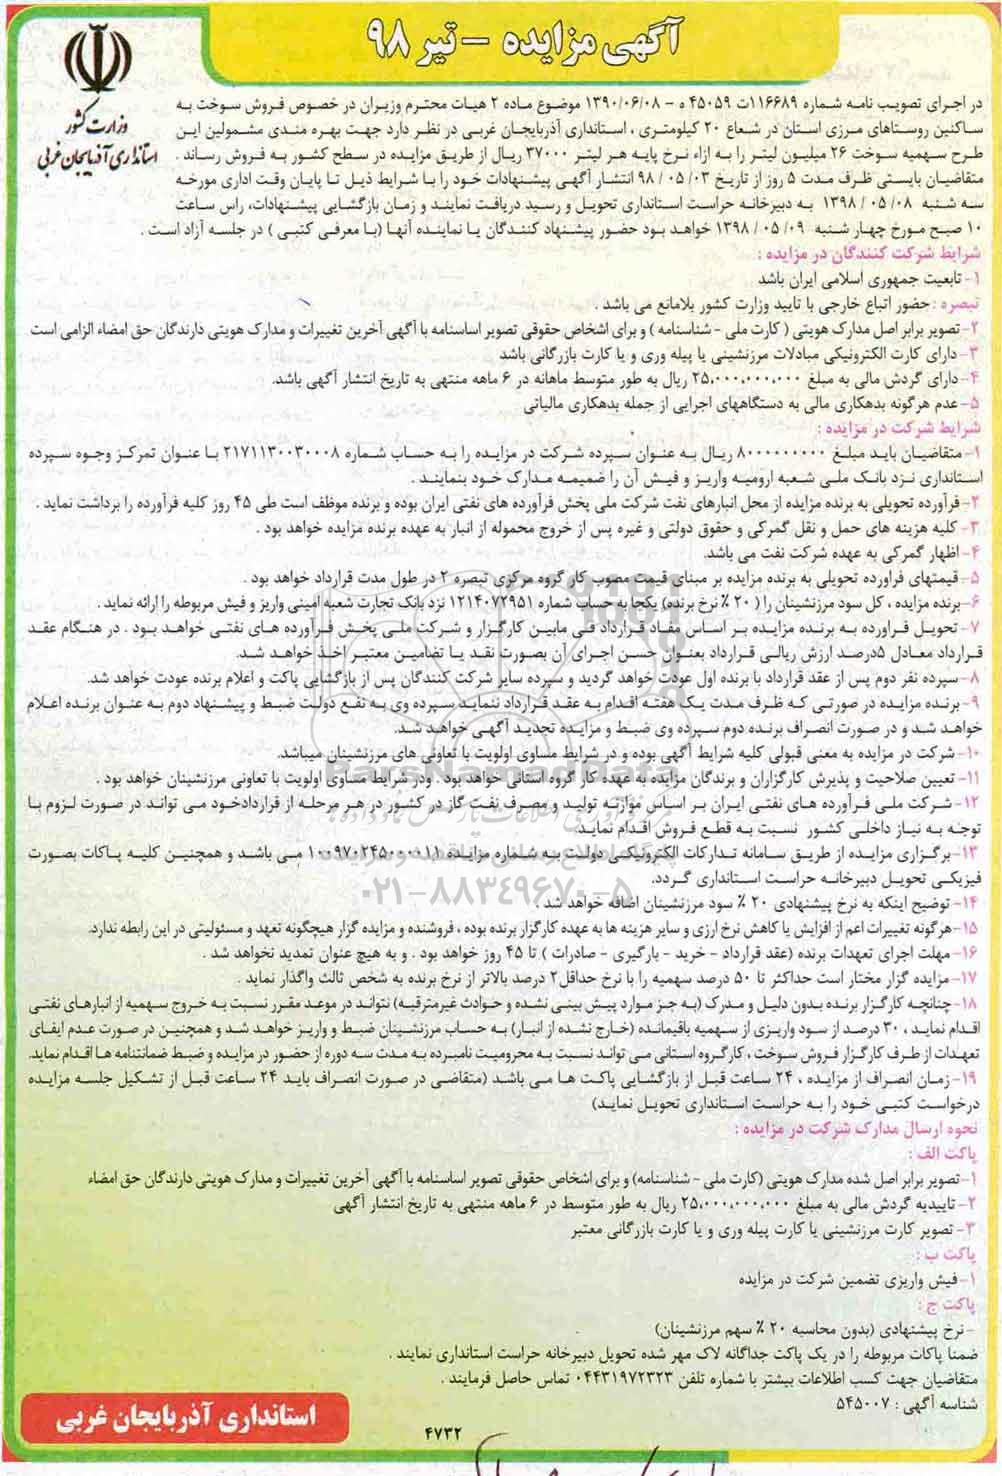 آگهی مزایده - تیر ۹۸
وزارت کشور
استانداری آذربایجان غربی
در اجرای تصویب نامه شماره ۱۱۶۶۸۹ت ۴۵۰۵۹ ه – ۱۳۹۰/۰۶/۰۸ موضوع ماده ۲ هیات محترم وزیران در خصوص فروش سوخت به
ساکنین روستاهای مرزی استان در شعاع ۲۰ کیلومتری ، استانداری آذربایجان غربی در نظر دارد جهت بهره مندی مشمولین این
طرح سهمیه سوخت ۲۶ میلیون لیتر را به ازاء نرخ پایه هر لیتر ۳۷۰۰۰ ریال از طریق مزایده در سطح کشور به فروش رساند .
متقاضیان بایستی ظرف مدت ۵ روز از تاریخ ۹۸/۰۵/۰۳ انتشار آگهی پیشنهادات خود را با شرایط ذیل تا پایان وقت اداری مورخه
سه شنبه ۱۳۹۸/۰۵/۰۸ به دبیرخانه حراست استانداری تحویل و رسید دریافت نمایند و زمان بازگشایی پیشنهادات، راس ساعت
۱۰ صبح مورخ چهار شنبه ۱۳۹۸/۰۵/۰۹ خواهد بود حضور پیشنهاد کنندگان یا نماینده آنها (با معرفی کتبی ) در جلسه آزاد است .
شرایط شرکت کنندگان در مزایده :
۱- تابعیت جمهوری اسلامی ایران باشد
تبصره : حضور اتباع خارجی با تایید وزارت کشور بلامانع می باشد .
۲- تصویر برابر اصل مدارک هویتی ( کارت ملی - شناسنامه ) و برای اشخاص حقوقی تصویر اساسنامه با آگهی آخرین تغییرات و مدارک هویتی دارندگان حق امضاء الزامی است
۳- دارای کارت الکترونیکی مبادلات مرزنشینی یا پیله وری و یا کارت بازرگانی باشد
۴- دارای گردش مالی به مبلغ ۲۵،۰۰۰،۰۰۰،۰۰۰ ریال به طور متوسط ماهانه در ۶ ماهه منتهی به تاریخ انتشار آگهی باشد.
۵- عدم هرگونه بدهکاری مالی به دستگاههای اجرایی از جمله بدهکاری مالیاتی
شرایط شرکت در مزایده :
۱- متقاضیان باید مبلغ ۸۰۰۰۰۰۰۰۰۰ ریال به عنوان سپرده شرکت در مزایده را به حساب شماره ۲۱۷۱۱۳۰۰۳۰۰۰۸ با عنوان تمرکز وجوه سپرده
استانداری نزد بانک ملی شعبه ارومیه واریز و فیش آن را ضمیمه مدارک خود بنمایند .
۲- فرآورده تحویلی به برنده مزایده از محل انبارهای نفت شرکت ملی پخش فرآورده های نفتی ایران بوده و برنده موظف است طی ۴۵ روز کلیه فرآورده را برداشت نماید .
۳- کلیه هزینه های حمل و نقل گمرکی و حقوق دولتی و غیره پس از خروج محموله از انبار به عهده برنده مزایده خواهد بود .
۴- اظهار گمرکی به عهده شرکت نفت می باشد.
۵- قیمتهای فراورده تحویلی به برنده مزایده بر مبنای قیمت مصوب کار گروه مرکزی تبصره ۲ در طول مدت قرارداد خواهد بود .
۶- برنده مزایده ، کل سود مرزنشینان را ( ۲۰ ٪ نرخ برنده) یکجا به حساب شماره ۱۲۱۴۰۷۲۹۵۱ نزد بانک تجارت شعبه امینی واریز و فیش مربوطه را ارائه نماید .
۷- تحویل فراورده به برنده مزایده بر اساس مفاد قرارداد فی مابین کارگزار و شرکت ملی پخش فرآورده های نفتی خواهد بود . در هنگام عقد
قرارداد معادل ۵درصد ارزش ریالی قرارداد بعنوان حسن اجرای آن بصورت نقد یا تضامین معتبر اخذ خواهد شد.
۸- سپرده نفر دوم پس از عقد قرارداد با برنده اول عودت خواهد گردید و سپرده سایر شرکت کنندگان پس از بازگشایی پاکت و اعلام برنده عودت خواهد شد.
۹- برنده مزایده در صورتی که ظرف مدت یک هفته اقدام به عقد قرارداد ننماید سپرده وی به نفع دولت ضبط و پیشنهاد دوم به عنوان برنده اعلام
خواهد شد و در صورت انصراف برنده دوم سپرده وی ضبط و مزایده تجدید آگهی خواهد شد.
۱۰- شرکت در مزایده به معنی قبولی کلیه شرایط آگهی بوده و در شرایط مساوی اولویت با تعاونی های مرزنشینان میباشد.
۱۱- تعیین صلاحیت و پذیرش کارگزاران و برندگان مزایده به عهده کار گروه استانی خواهد بود . ودر شرایط مساوی اولویت با تعاونی مرزنشینان خواهد بود .
۱۲- شرکت ملی فرآورده های نفتی ایران بر اساس موازنه تولید و مصرف نفت گاز در کشور در هر مرحله از قراردادخود می تواند در صورت لزوم با
توجه به نیاز داخلی کشور نسبت به قطع فروش اقدام نماید.
۱۳- برگزاری مزایده از طریق سامانه تدارکات الکترونیکی دولت به شماره مزایده ۱۰۰۹۷۰۲۴۵۰۰۰۰۱۱ می باشد و همچنین کلیه پاکات بصورت
فیزیکی تحویل دبیرخانه حراست استانداری گردد.
۱۴- توضیح اینکه به نرخ پیشنهادی ۲۰ ٪ سود مرزنشینان اضافه خواهد شد
۰۲۱-۸۸۳۴۹۶۷۰-۵
۱۵- هرگونه تغییرات اعم از افزایش یا کاهش نرخ ارزی و سایر هزینه ها به عهده کارگزار برنده بوده ، فروشنده و مزایده گزار هیچگونه تعهد و مسئولیتی در این رابطه ندارد.
۱۶- مهلت اجرای تعهدات برنده (عقد قرارداد - خرید - بارگیری - صادرات ) تا ۴۵ روز خواهد بود . و به هیچ عنوان تمدید نخواهد شد .
۱۷- مزایده گزار مختار است حداکثر تا ۵۰ درصد سهمیه را با نرخ حداقل۲ درصد بالاتر از نرخ برنده به شخص ثالث واگذار نماید .
۱۸- چنانچه کارگزار برنده بدون دلیل و مدرک (به جز موارد پیش بینی نشده و حوادث غیرمترقبه) نتواند در موعد مقرر نسبت به خروج سهمیه از انبارهای نفتی
اقدام نماید ، ۳۰ درصد از سود واریزی از سهمیه باقیمانده (خارج نشده از انبار) به حساب مرزنشینان ضبط و واریز خواهد شد و همچنین در صورت عدم ایفای
تعهدات از طرف کارگزار فروش سوخت ، کارگروه استانی می تواند نسبت به محرومیت نامبرده به مدت سه دوره از حضور در مزایده و ضبط ضمانتنامه ها اقدام نماید.
۱۹- زمان انصراف از مزایده ، ۲۴ ساعت قبل از بازگشایی پاکت ها می باشد (متقاضی در صورت انصراف باید ۲۴ ساعت قبل از تشکیل جلسه مزایده
درخواست کتبی خود را به حراست استانداری تحویل نماید)
نحوه ارسال مدارک شرکت در مزایده :
پاکت الف :
۱- تصویر برابر اصل شده مدارک هویتی (کارت ملی - شناسنامه) و برای اشخاص حقوقی تصویر اساسنامه با آگهی آخرین تغییرات و مدارک هویتی دارندگان حق امضاء
۲- تاییدیه گردش مالی به مبلغ ۲۵،۰۰۰،۰۰۰،۰۰۰ ریال به طور متوسط در ۶ ماهه منتهی به تاریخ انتشار آگهی
۳- تصویر کارت مرزنشینی یا کارت پیله وری و یا کارت بازرگانی معتبر
پاکت ب :
۱- فیش واریزی تضمین شرکت در مزایده
پاکت ج :
- نرخ پیشنهادی (بدون محاسبه ۲۰ ٪ سهم مرزنشینان)
ضمنا پاکات مربوطه را در یک پاکت جداگانه لاک مهر شده تحویل دبیرخانه حراست استانداری نمایند .
متقاضیان جهت کسب اطلاعات بیشتر با شماره تلفن ۰۴۴۳۱۹۷۲۳۲۳ تماس حاصل فرمایند .
شناسه آگهی : ۵۴۵۰۰۷
استانداری آذربایجان غربی
۴۷۳۲